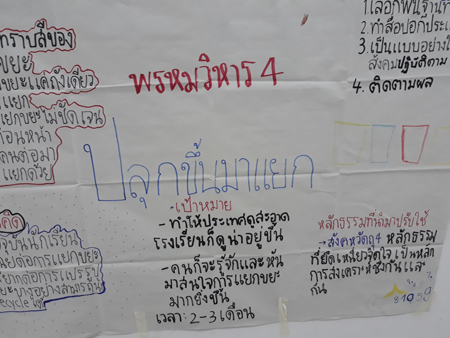 กราบสีของ
ขยะ
ขยะแค่ถังเดียว
แยก
แยกขยะไม่ชัดเจน
ก่อนหน้า
คนต่อมา
แยกด้วย
พรหมวิหาร 4
1. เลือกพื้นฐานที่
2. ทำสื่อปอกประเ
3. เป็นแบบอย่างใ
สังคมปฏิบัติตาม
4. ติดตามผล
ปลุกขึ้นมาแยก
- เป้าหมาย
- ทำให้ประเทศดูสะอาด
โรงเรียนก็ดูน่าอยู่ขึ้น
- คนก็จะรู้จักและหัน
มาสนใจการแยกขยะ
มากยิ่งขึ้น
เวลา: 2-3 เดือน
หลักธรรมที่นำมาปรับใช้
→ สังคหวัตถุ4 หลักธรรม
ที่ยึดเหนี่ยวจิตใจ เป็นหลัก
การสงเคราะห์ซึ่งกันและ
กัน
นักเรียน
ต่อการแยกขยะ